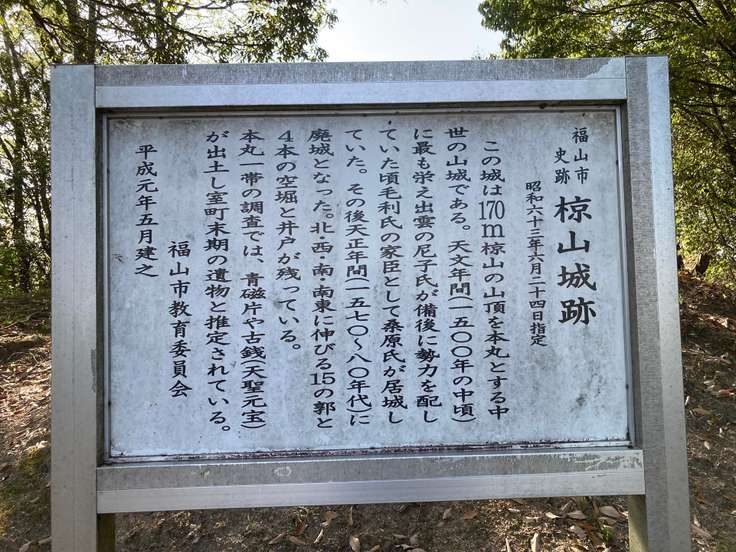 福山市
史跡
椋山城跡
昭和六十三年六月二十四日指定
この城は170m椋山の山頂を本丸とする中
世の山城である。天文年間(一五〇〇年の中頃)
に最も栄え出雲の尼子氏が備後に勢力を配し
ていた頃毛利氏の家臣として桑原氏が居城し
ていた。その後天正年間(一五七〇〜八〇年代)に
廃城となった。北・西・南・南東に伸びる15の郭と
4本の空堀と井戸が残っている。
本丸一帯の調査では、青磁片や古銭(天聖元宝)
が出土し室町末期の遺物と推定されている。
福山市教育委員会
平成元年五月建之